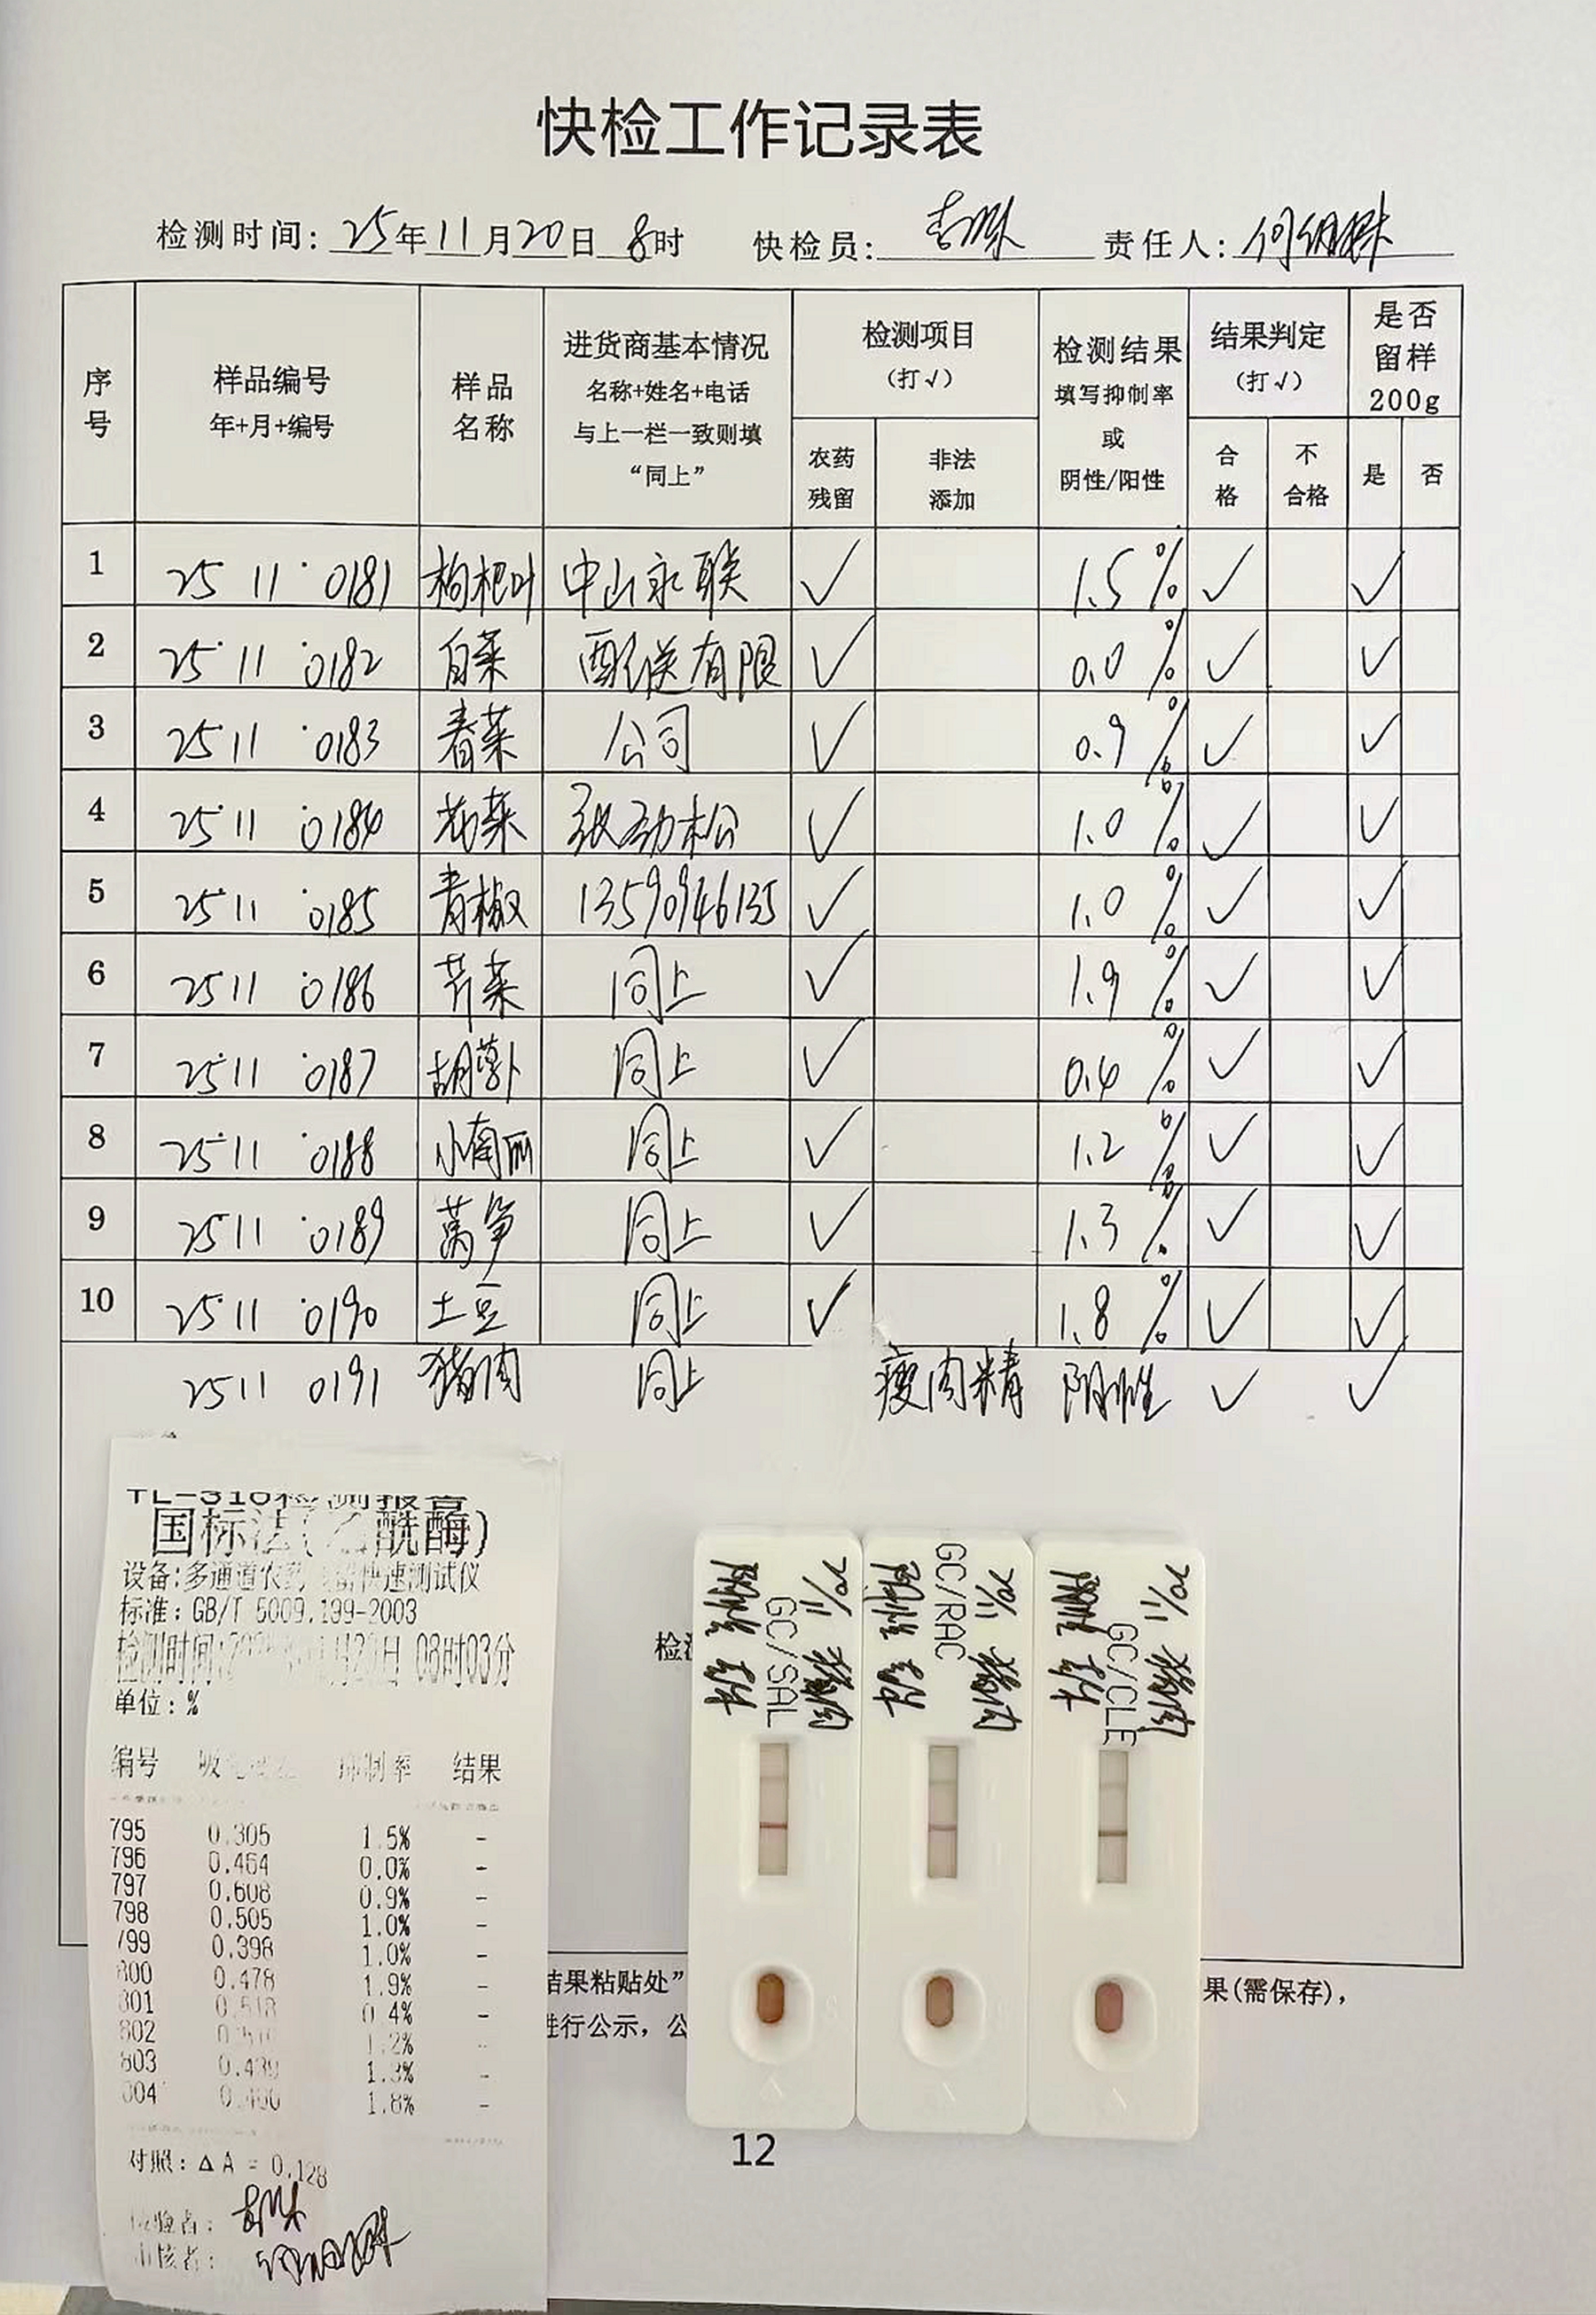 快检工作记录表
检测时间：25年11月20日8时 快检员： 责任人：
序号 样品编号 年+月+编号 样品名称 进货商基本情况 名称+姓名+电话 与上一栏一致则填“同上” 检测项目（打√） 农药残留 非法添加 检测结果 填写抑制率或阴性/阳性 结果判定（打√） 合格 不合格 是否留样200g 是 否
1 25 11 0181 枸杞叶 中山永联 √ 1.5% √ √
2 25 11 0182 白菜 配送有限 √ 0.0% √ √
3 25 11 0183 春菜 公司 √ 0.9% √ √
4 25 11 0184 花菜 张劲松 √ 1.0% √ √
5 25 11 0185 青椒 13590946135 √ 1.0% √ √
6 25 11 0186 芹菜 同上 √ 1.9% √ √
7 25 11 0187 胡萝卜 同上 √ 0.4% √ √
8 25 11 0188 小南瓜 同上 √ 1.2% √ √
9 25 11 0189 莴笋 同上 √ 1.3% √ √
10 25 11 0190 土豆 同上 √ 1.8% √ √
25 11 0191 猪肉 同上 瘦肉精 阴性 √ √
TL-310检测报告
国标法(乙酰酶)
设备:多通道农药 快速测试仪
标准：GB/T 5009.199-2003
检测时间: 月20日 08时03分
单位：%
编号 抑制率 结果
795 0.305 1.5% -
796 0.464 0.0% -
797 0.608 0.9% -
798 0.505 1.0% -
799 0.398 1.0% -
800 0.478 1.9% -
801 0.4% -
802 1.2% -
803 0.439 1.3% -
804 1.8% -
对照：ΔA = 0.128
检验者：
审核者：
20/11 猪肉
GC/SAL
阴性
20/11 猪肉
GC/RAC
阴性
20/11 猪肉
GC/CLE
阴性
检
结果粘贴处” 果(需保存)，
进行公示，公
12